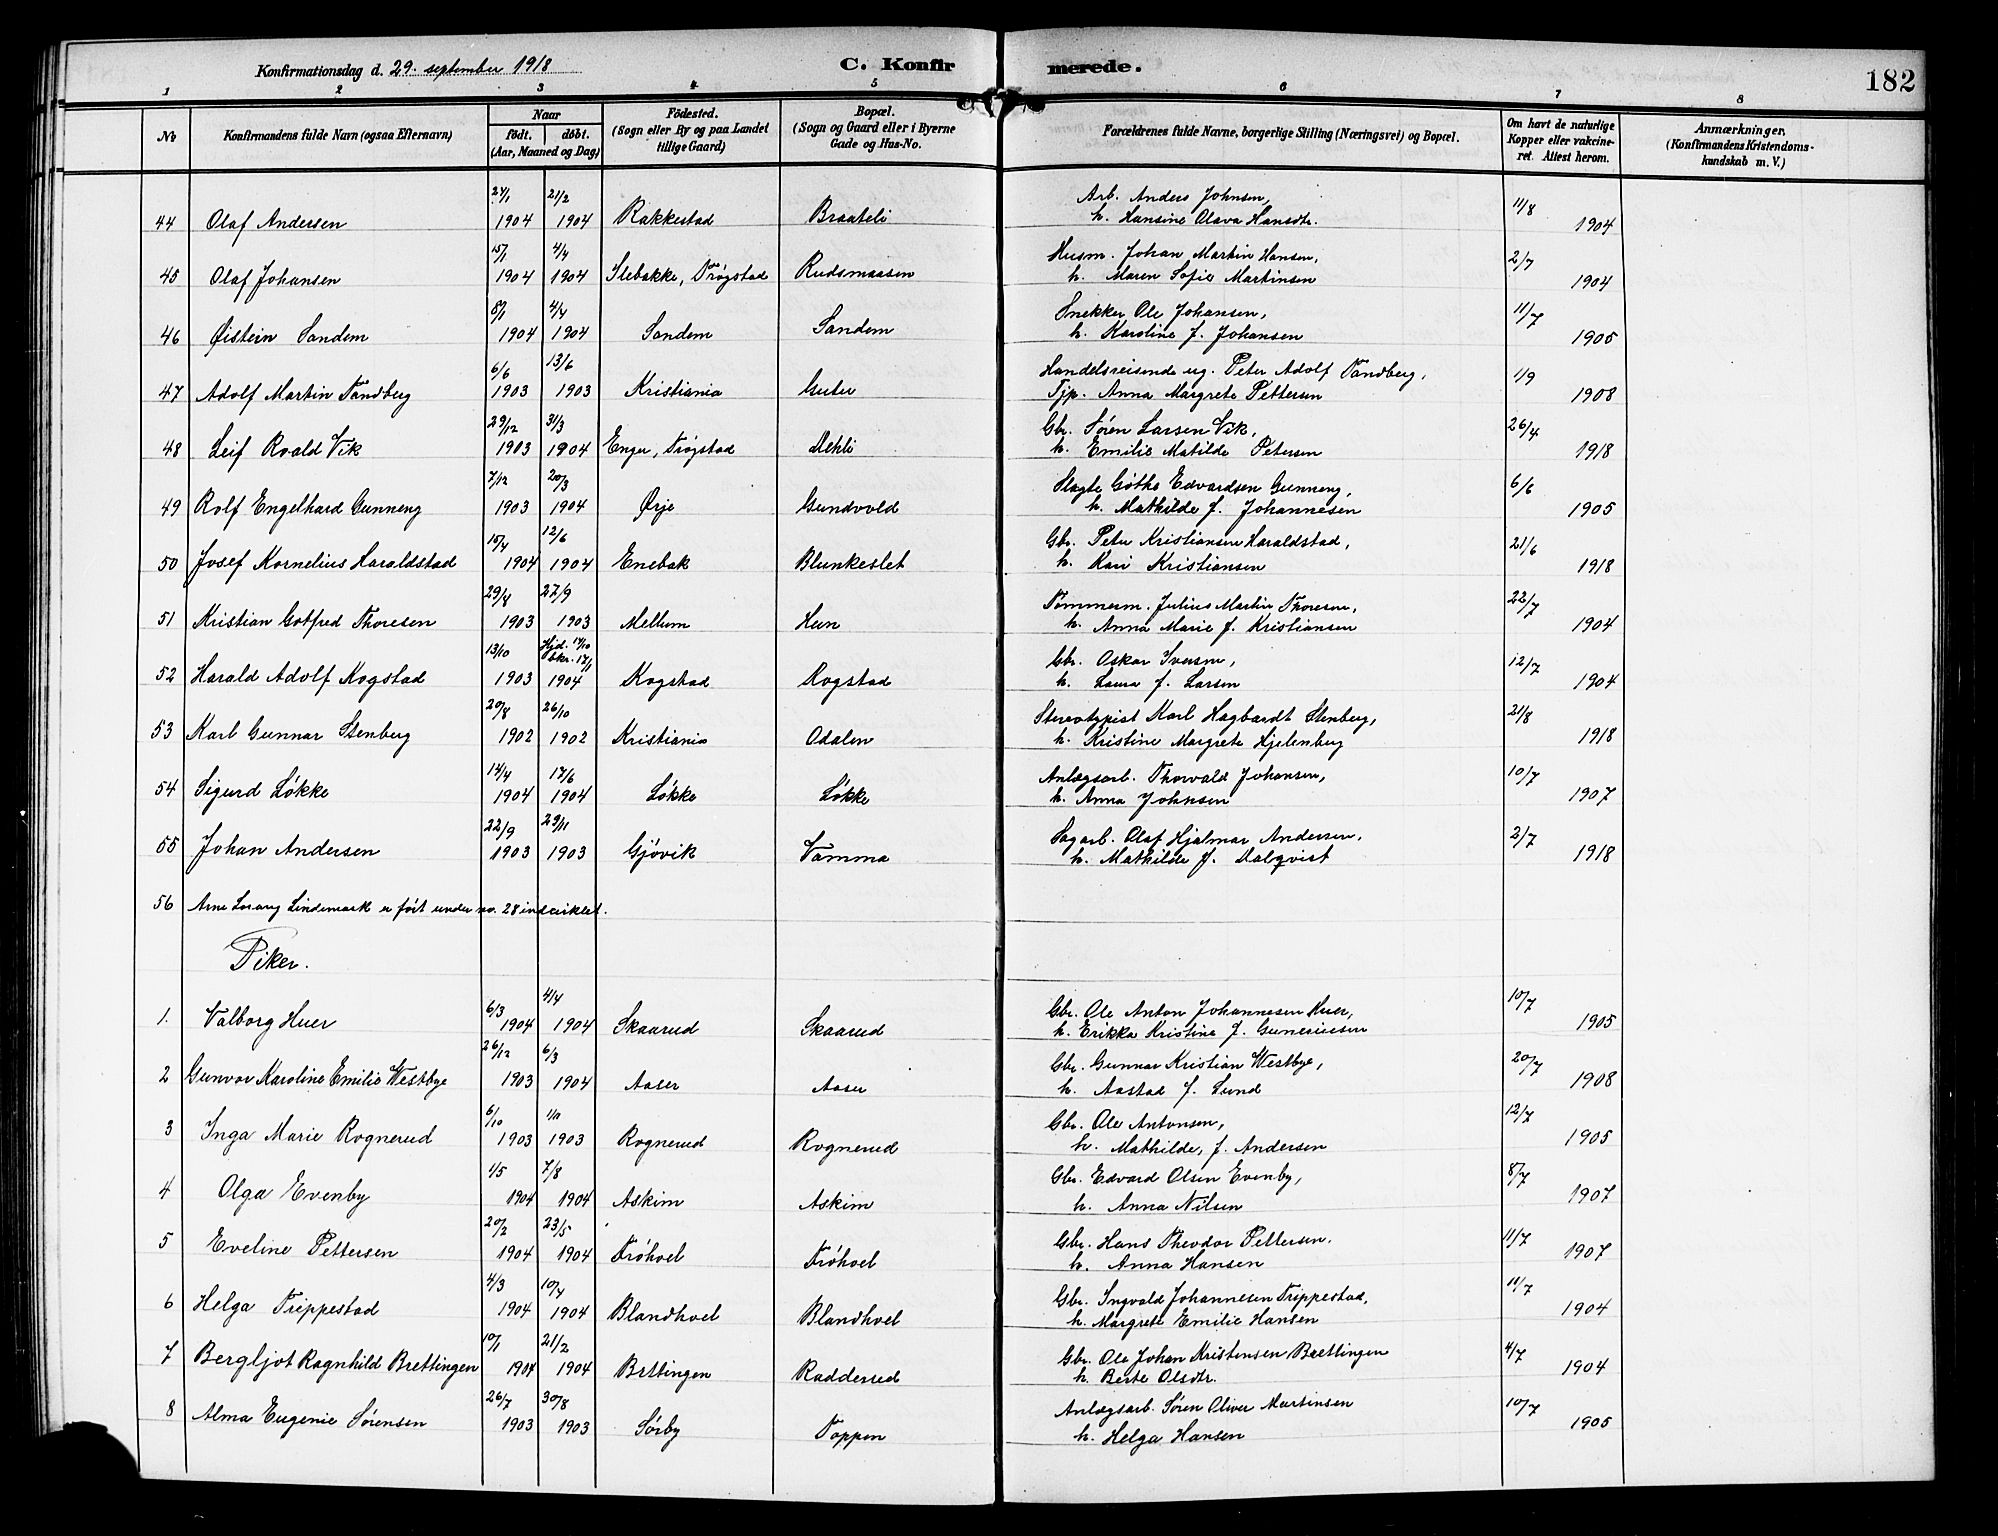 Konfirmationsdag d. 29. september 1918 C. Konfirmerede. 182
1 2 3 4 5 6 7 8
No Konfirmandens fulde Navn (ogsaa Efternavn) Naar födt. döbt. (Aar, Maaned og Dag) Födested. (Sogn eller By og paa Landet tillige Gaard) Bopæl. (Sogn og Gaard eller i Byerne Gade og Hus-No. Forældrenes fulde Navne, borgerlige Stilling (Næringsvei) og Bopæl. Om havt de naturlige Kopper eller vakcineret. Attest herom. Anmærkninger. (Konfirmandens Kristendomskundskab m. V.)
44 Olaf Andersen 24/1 1904 21/2 1904 Rakkestad Braateli Arb. Anders Johnsen, h. Hansine Olava Hansdtr. 11/8 1904
45 Olaf Johansen 15/1 1904 4/4 1904 Slebakke, Trøgstad Rudsmaasen Husm. Johan Martin Hansen, h. Maren Sofie Martinsen 2/7 1904
46 Øistein Sandem 8/1 1904 4/4 1904 Sandem Sandem Snekker Ole Johansen, h. Karoline f. Johansen 11/7 1905
47 Adolf Martin Tandberg 6/6 1903 13/6 1903 Kristiania Guter Handelsreisende ug. Peter Adolf Tandberg, Tjp. Anna Margrete Pettersen 1/9 1908
48 Leif Roald Vik 29/12 1903 31/3 1904 Enger, Trøgstad Dehli Gbr. Søren Larsen Vik, h. Emilie Matilde Petersen 26/4 1918
49 Rolf Engelhard Gunneng 7/12 1903 20/3 1904 Ørje Gundvold Slagte Göthe Edvardsen Gunneng, h. Mathilde f. Johannesen 6/6 1905
50 Josef Kornelius Haraldstad 15/4 1904 12/6 1904 Enebak Blunkeslet Gbr. Peter Kristiansen Haraldstad, h. Kari Kristiansen 21/6 1918
51 Kristian Gotfred Thoresen 29/8 1903 27/9 1903 Mellum Heen Tømmerm. Julius Martin Thoresen, h. Anna Marie f. Kristiansen 22/7 1904
52 Harald Adolf Kogstad 13/10 1903 Hjd. 14/10 bkr. 17/1 1904 Kogstad Rogstad Gbr. Oskar Iversen, h. Laura f. Larsen 12/7 1904
53 Karl Gunnar Stenberg 20/8 1902 26/10 1902 Kristiania Odalen Stereotypist Karl Hagbardt Stenberg, h. Kristine Margrete Hjelenberg 21/8 1918
54 Sigurd Løkke 14/4 1904 12/6 1904 Løkke Løkke Anlægsarb. Thorvald Johansen, h. Anna Johnsen 10/7 1907
55 Johan Andersen 22/9 1903 29/11 1903 Gjøvik Vamma Sagarb. Olaf Hjalmar Andersen. h. Mathilde f. Dalqvist 2/7 1918
56 Arne Lorang Lindemark er ført under no. 28 indcirklet.
Piker.
1. Valborg Huer 6/3 1904 4/4 1904 Skaarud Skaarud Gbr. Ole Anton Johannesen Huer, h. Erikka Kristine f. Gunerinsen 10/7 1905
2 Gunvor Karoline Emilie Westbye 26/12 1903 6/3 1904 Aaser Aaser Gbr. Gunnar Kristian Westbye, h. Aastad f. Lund 20/7 1908
3 Inga Marie Rognerud 6/10 1903 1/11 1903 Rognerud Rognerud Gbr. Ole Antonsen, h. Mathilde, f. Andersen 12/7 1905
4 Olga Evenby 1/5 1904 7/8 1904 Askim Askim Gbr. Edvard Olsen Evenby, h. Anna Nilsen 8/7 1907
5 Eveline Pettersen 20/2 1904 23/5 1904 Frøhoel Frøhoel Gbr. Hans Theodor Pettersen, h. Anna Hansen 11/7 1907
6 Helga Trippestad 4/3 1904 10/4 1904 Blandhoel Blandhoel Gbr. Ingvald Johannesen Trippestad, h. Margrete Emilie Hansen 11/7 1904
7 Bergljot Ragnhild Brettingen 10/1 1904 21/2 1904 Brettingen Radderud Gbr. Ole Johan Kristensen Brettingen h. Berte Olsdtr. 4/7 1904
8 Alma Eugenie Sørensen 26/7 1903 30/8 1903 Sørby Toppen Anlægsarb. Søren Oliver Martinsen h. Helga Hansen 10/7 1905